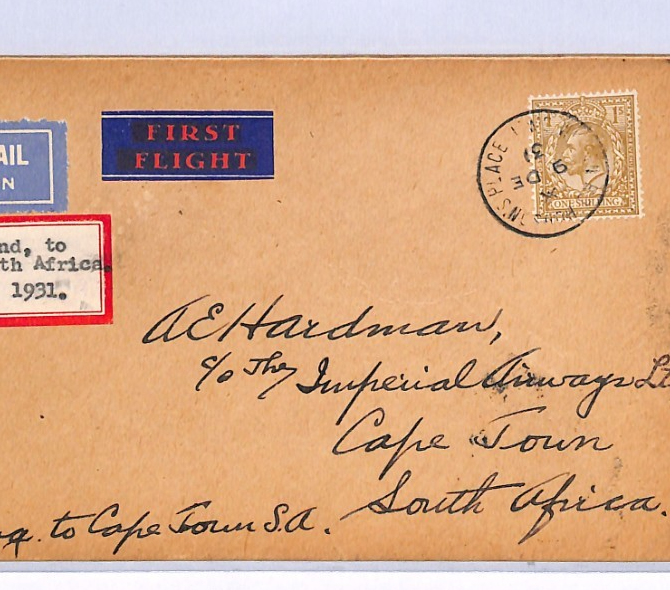 FIRST
FLIGHT
AIL
N
nd, to
th Africa.
1931.
1/-
ONE SHILLING
PLACE
9 DE
31
A E Hardman,
c/o The Imperial Airways Lt
Cape Town
South Africa.
to Cape Town S.A.